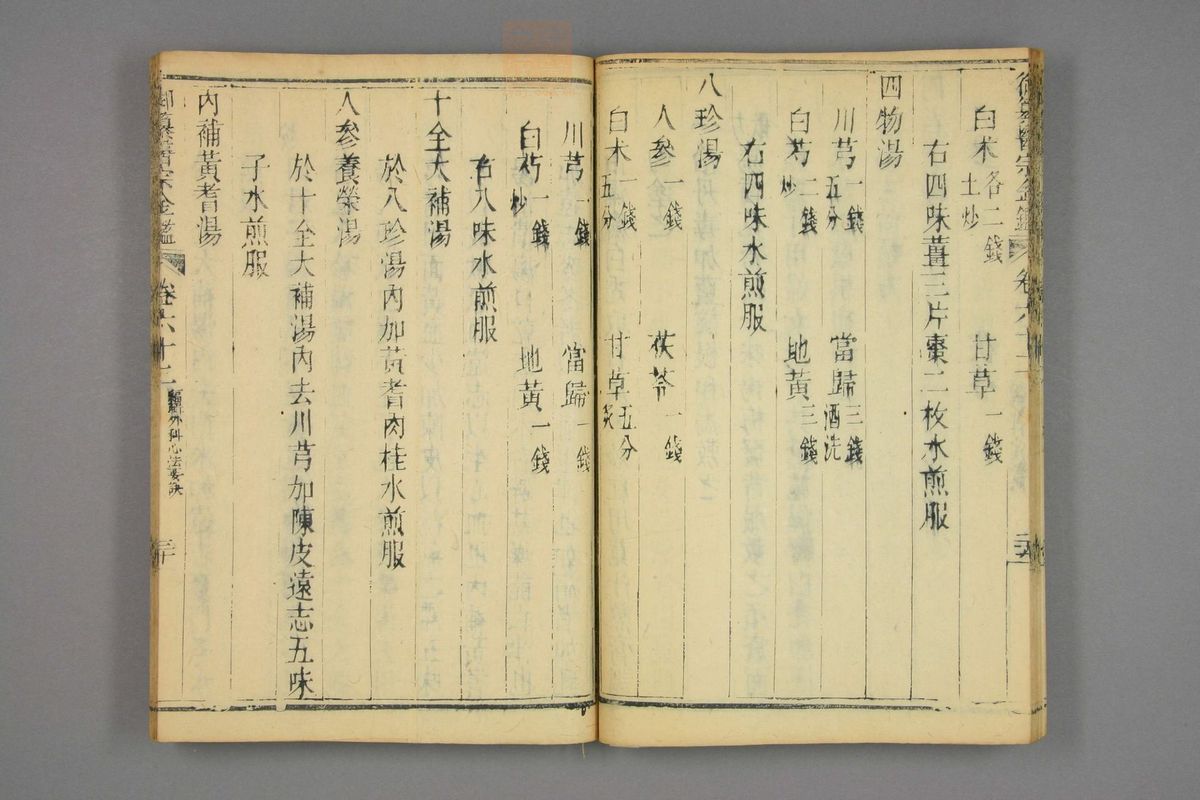 白朮各二錢土炒 甘草一錢
右四味薑三片棗二枚水煎服
四物湯
川芎一錢五分 當歸三錢酒洗
白芍二錢炒 地黃三錢
右四味水煎服
八珍湯
人參一錢 茯苓一錢
白朮一錢五分 甘草五分炙
川芎一錢 當歸一錢
白芍一錢炒 地黃一錢
右八味水煎服
十全大補湯
於八珍湯內加黃耆肉桂水煎服
人參養榮湯
於十全大補湯內去川芎加陳皮遠志五味
子水煎服
內補黃耆湯
御纂醫宗金鑑 卷六十二 編輯外科心法要訣 三十